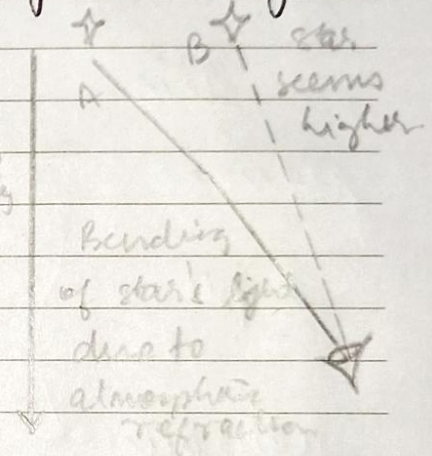 B star
seems
higher
A
Bending
of star's light
due to
atmospheric
refraction